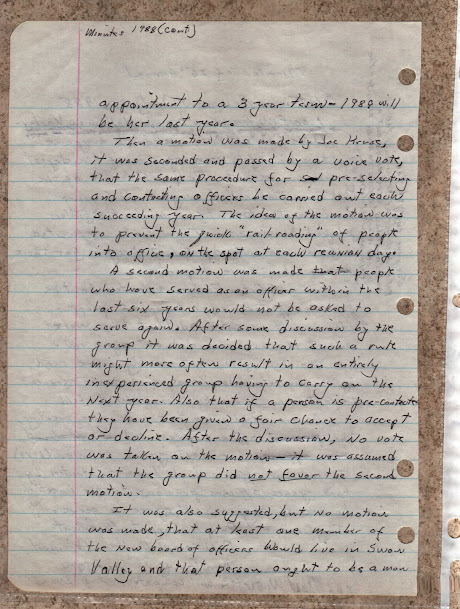 Minutes 1988 (cont)
appointment to a 3 year term - 1988 will
be her last year.
Then a motion was made by Joe Kruse,
it was seconded and passed by a voice vote,
that the same proceedure for pre-selecting
and contacting officers be carried out each
succeeding year. The idea of the motion was
to prevent the quick "rail-roading" of people
into office, on the spot at each reunion day.
A second motion was made that people
who have served as an officer within the
last six years would not be asked to
serve again. After some discussion by the
group it was decided that such a rule
might more often result in an entirely
inexperienced group having to carry on the
next year. Also that if a person is pre-contacted
they have been given a fair chance to accept
or decline. After the discussion, no vote
was taken on the motion - it was assumed
that the group did not favor the second
motion.
It was also suggested, but no motion
was made, that at least one member of
the new board of officers would live in Swan
Valley and that person ought to be a man